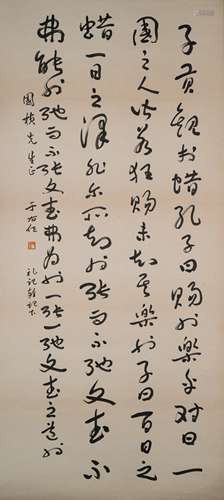 子貢觀於蜡孔子曰賜也樂乎對曰一
國之人皆若狂賜未知其樂也子曰百日之
蜡一日之澤非尔所知也張而不弛文武不
弗能也弛而不張文武弗為也一張一弛文武之道也
國楨先生正
于右任
礼記雜記下